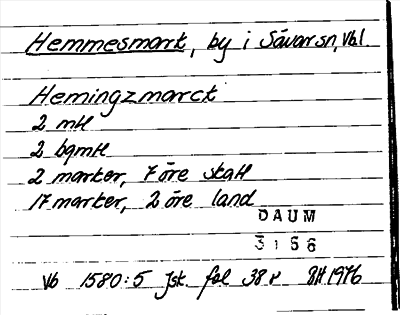 Hemmesmark, by i Sävar sn, Vbl.
Hemingzmarck
2 mtl
2 bqmtl
2 marker, 7 öre skatt
17 marker, 2 öre land
DAUM
3156
Vb 1580:5 Jsk. fol 38 r BH 1976